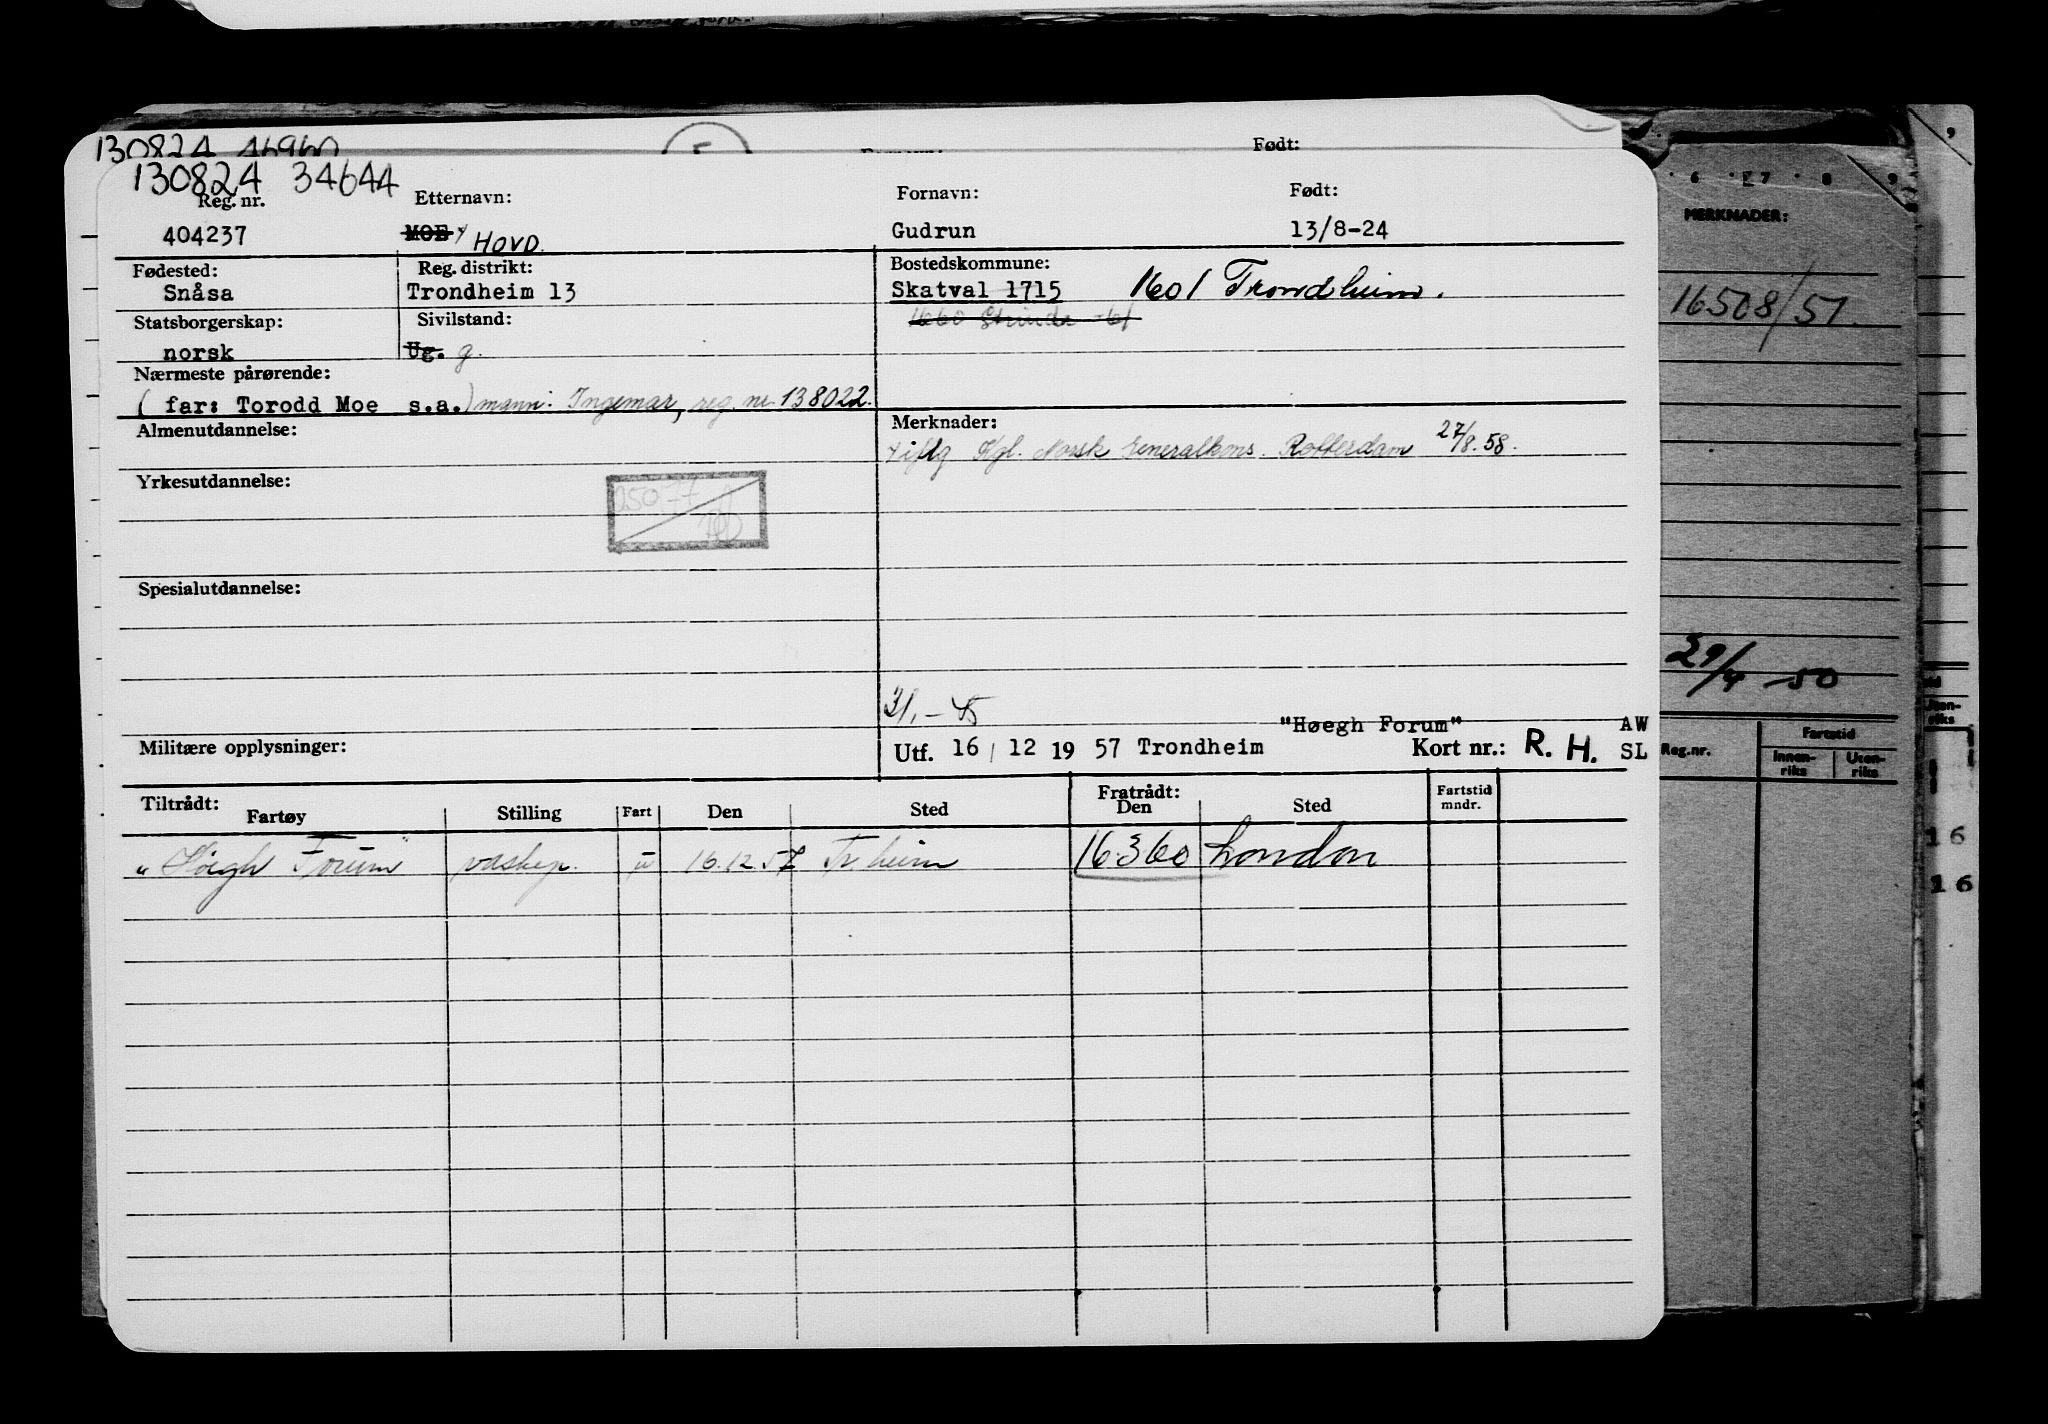 130824 46960
Født:
130824 34644
Reg. nr.
Etternavn:
Fornavn:
Født:
404237
MOE x HOVD.
Gudrun
13/8-24
Fødested:
Reg. distrikt:
Bostedskommune:
Snåsa
Trondheim 13
Skatval 1715 1601 Trondheim.
Statsborgerskap:
Sivilstand:
1660 Strinda -61
norsk
Ug. g.
Nærmeste pårørende:
( far: Torodd Moe s.a.) mann: Ingemar, reg. nr. 138022.
Almenutdannelse:
Merknader:
x iflg Kgl. Norsk Generalkons. Rotterdam 27/8.58.
Yrkesutdannelse:
Spesialutdannelse:
31,-
"Høegh Forum" AW
Militære opplysninger:
Utf. 16 / 12 19 57 Trondheim
Kort nr.: R. H. SL
Tiltrådt:
Fartøy
Stilling
Fart
Den
Sted
Fratrådt:
Den
Sted
Fartstid
mndr.
"Høegh Forum" vaskep. u 16.12.57 Tr.heim 16360 London
6 7 8 9
MERKNADER:
16508/51.
29/4 -50
Reg.nr.
Fartstid
Innen-
riks
Uten-
riks
Uten-
riks
16
16